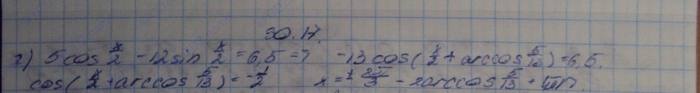 30.17.
г) 5cos x/2 - 12sin x/2 = 6,5 => -13 cos(x/2 + arccos 5/13) = 6,5.
cos(x/2 + arccos 5/13) = -1/2 x = ± 2π/3 - 2arccos 5/13 + 4πn.